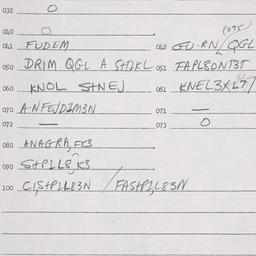 032 O
040 O (075)
041 FUDEM 042 GU·RN/QGL
050 DRIM QGL A StIKL 051 FAPL8ONT3T
060 KNOL StNEJ 061 KNEL3XL
070 A·NFEJDZM3N 071 —
072 — 073 O
080 ANAGRA, FK3
090 StPLL8, K3
100 CIStPLL83N / FAStPLL83N